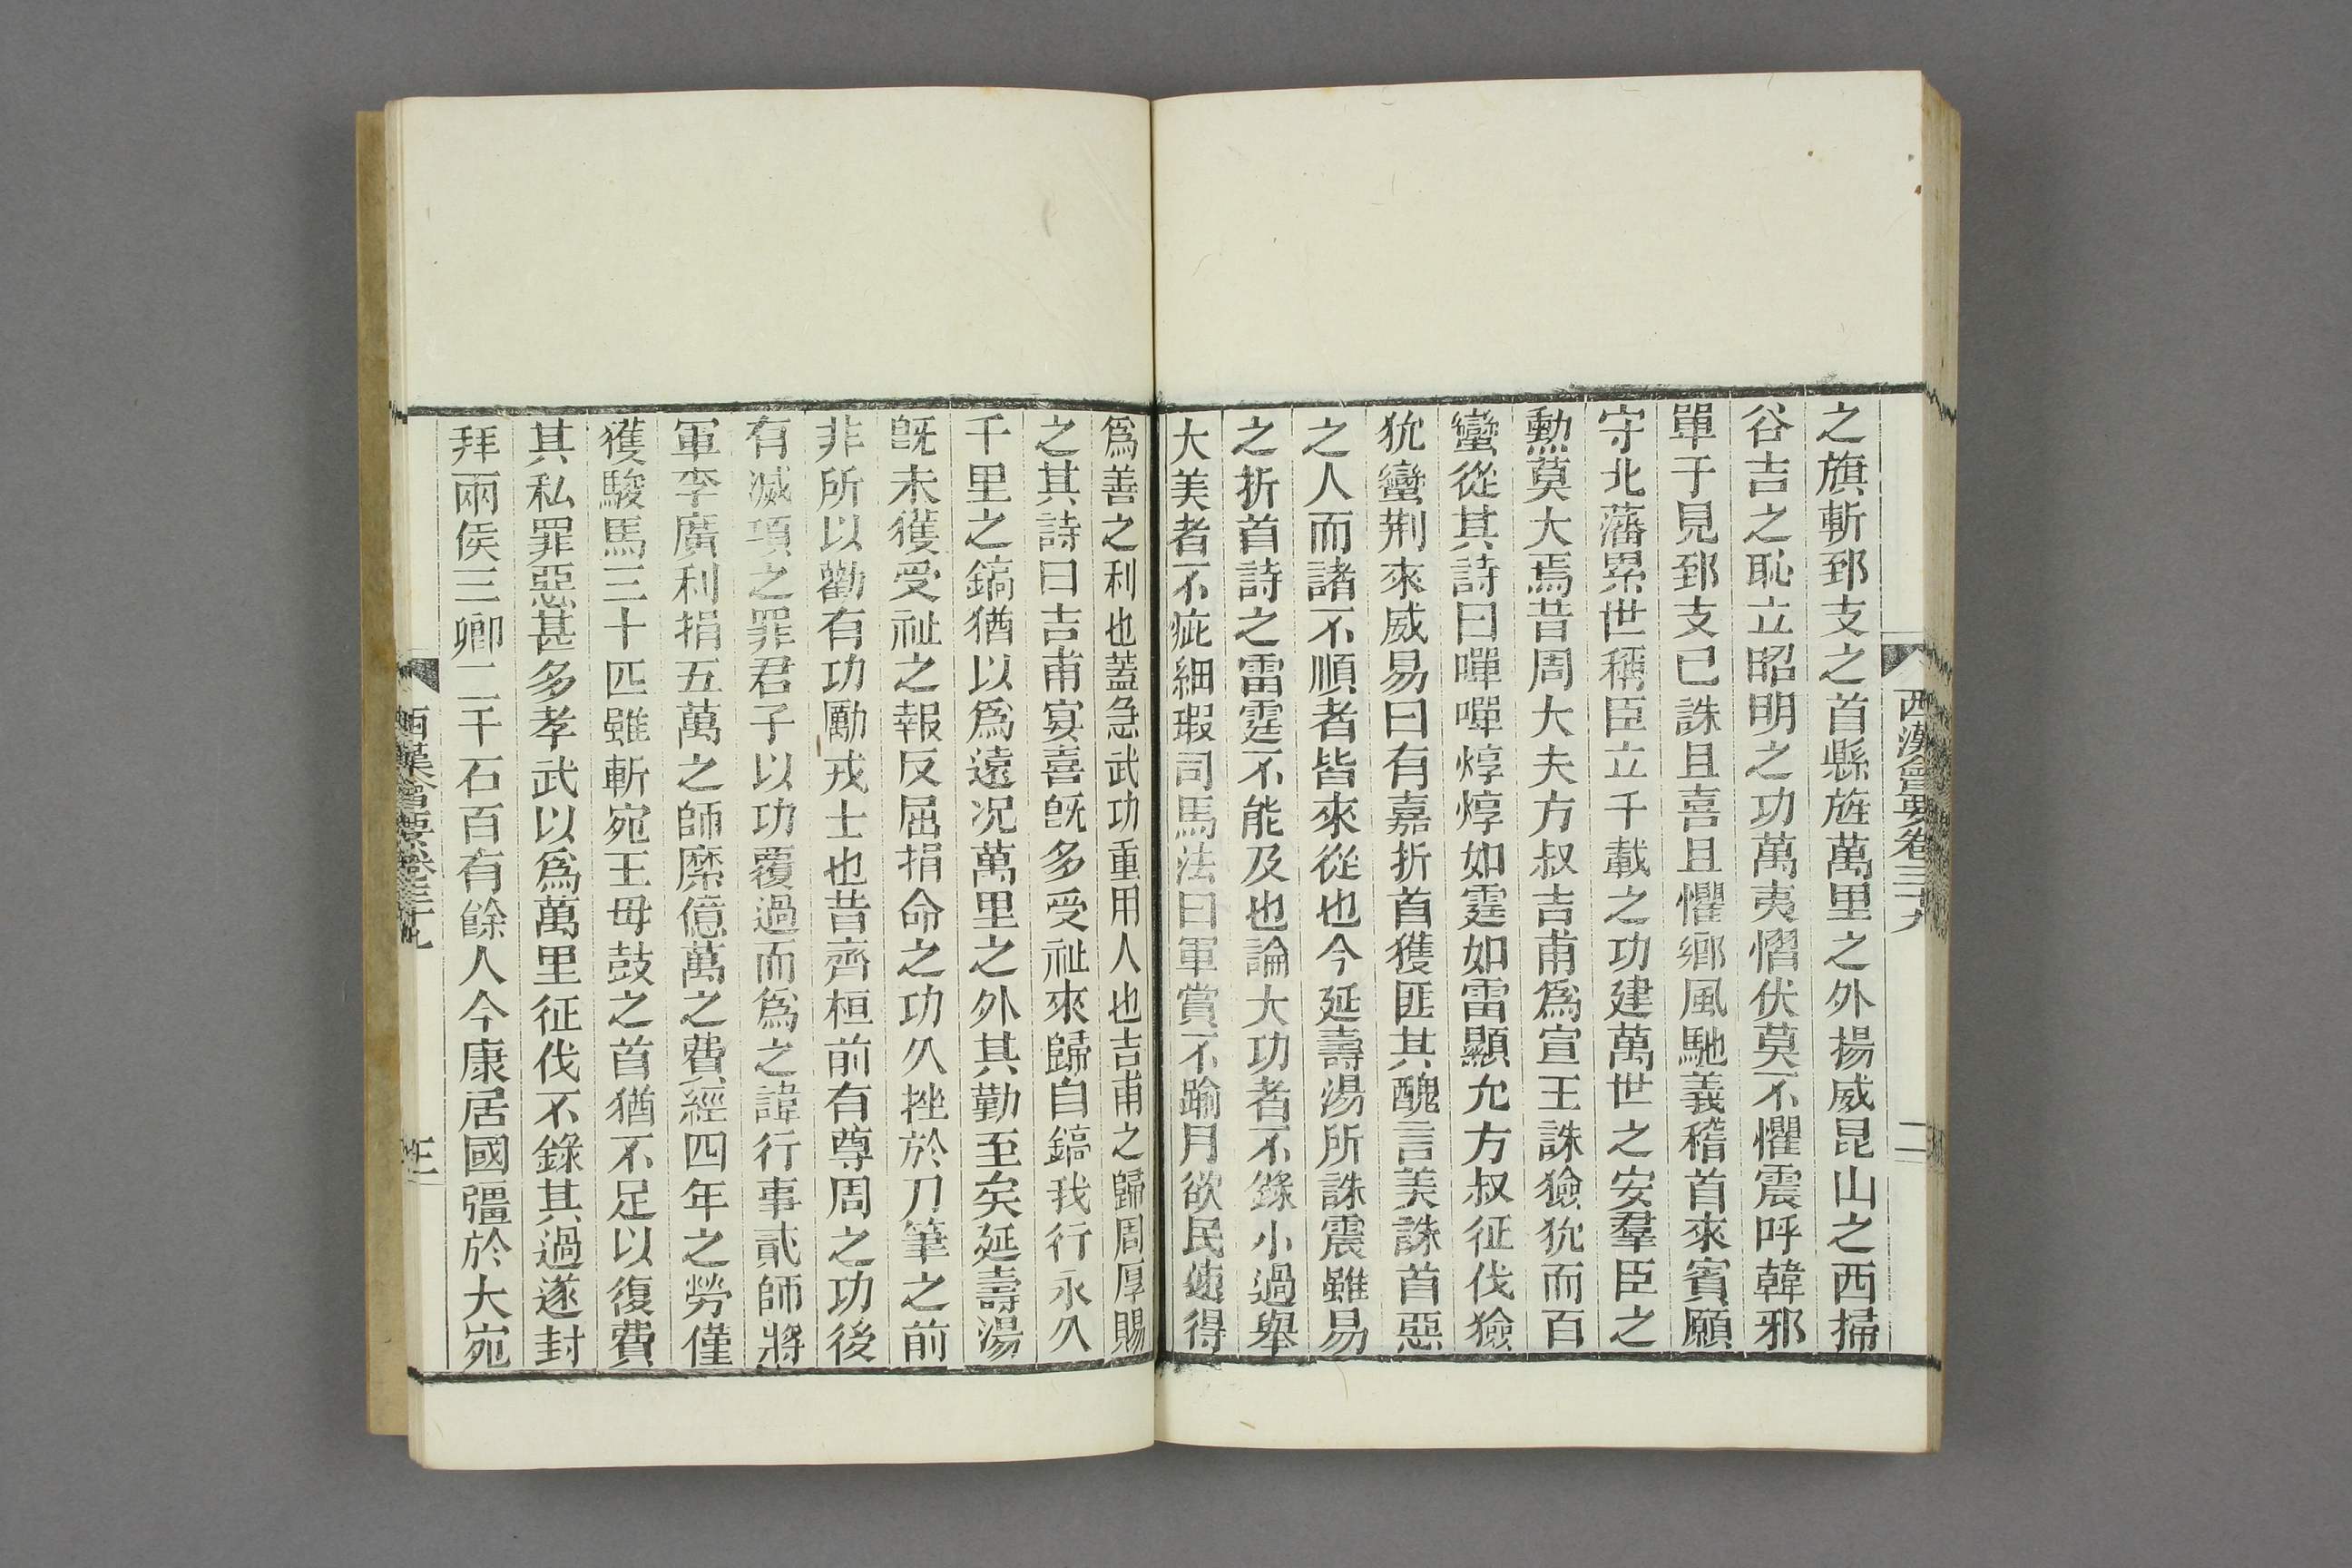 西漢會要卷三十九
二
之旗斬郅支之首縣旌萬里之外揚威昆山之西掃
谷吉之恥立昭明之功萬夷慴伏莫不懼震呼韓邪
單于見郅支已誅且喜且懼鄉風馳義稽首來賓願
守北藩累世稱臣立千載之功建萬世之安羣臣之
勳莫大焉昔周大夫方叔吉甫爲宣王誅獫狁而百
蠻從其詩曰嘽嘽焞焞如霆如雷顯允方叔征伐獫
狁蠻荆來威易曰有嘉折首獲匪其醜言美誅首惡
之人而諸不順者皆來從也今延壽湯所誅震雖易
之折首詩之雷霆不能及也論大功者不錄小過舉
大美者不疵細瑕司馬法曰軍賞不踰月欲民速得
爲善之利也蓋急武功重用人也吉甫之歸周厚賜
之其詩曰吉甫宴喜旣多受祉來歸自鎬我行永久
千里之鎬猶以爲遠况萬里之外其勤至矣延壽湯
旣未獲受祉之報反屈捐命之功久挫於刀筆之前
非所以勸有功勵戎士也昔齊桓前有尊周之功後
有滅項之罪君子以功覆過而爲之諱行事貳師將
軍李廣利捐五萬之師縻億萬之費經四年之勞僅
獲駿馬三十匹雖斬宛王毋鼓之首猶不足以復費
其私罪惡甚多孝武以爲萬里征伐不錄其過遂封
拜兩侯三卿二千石百有餘人今康居國彊於大宛
西漢會要卷三十九
三